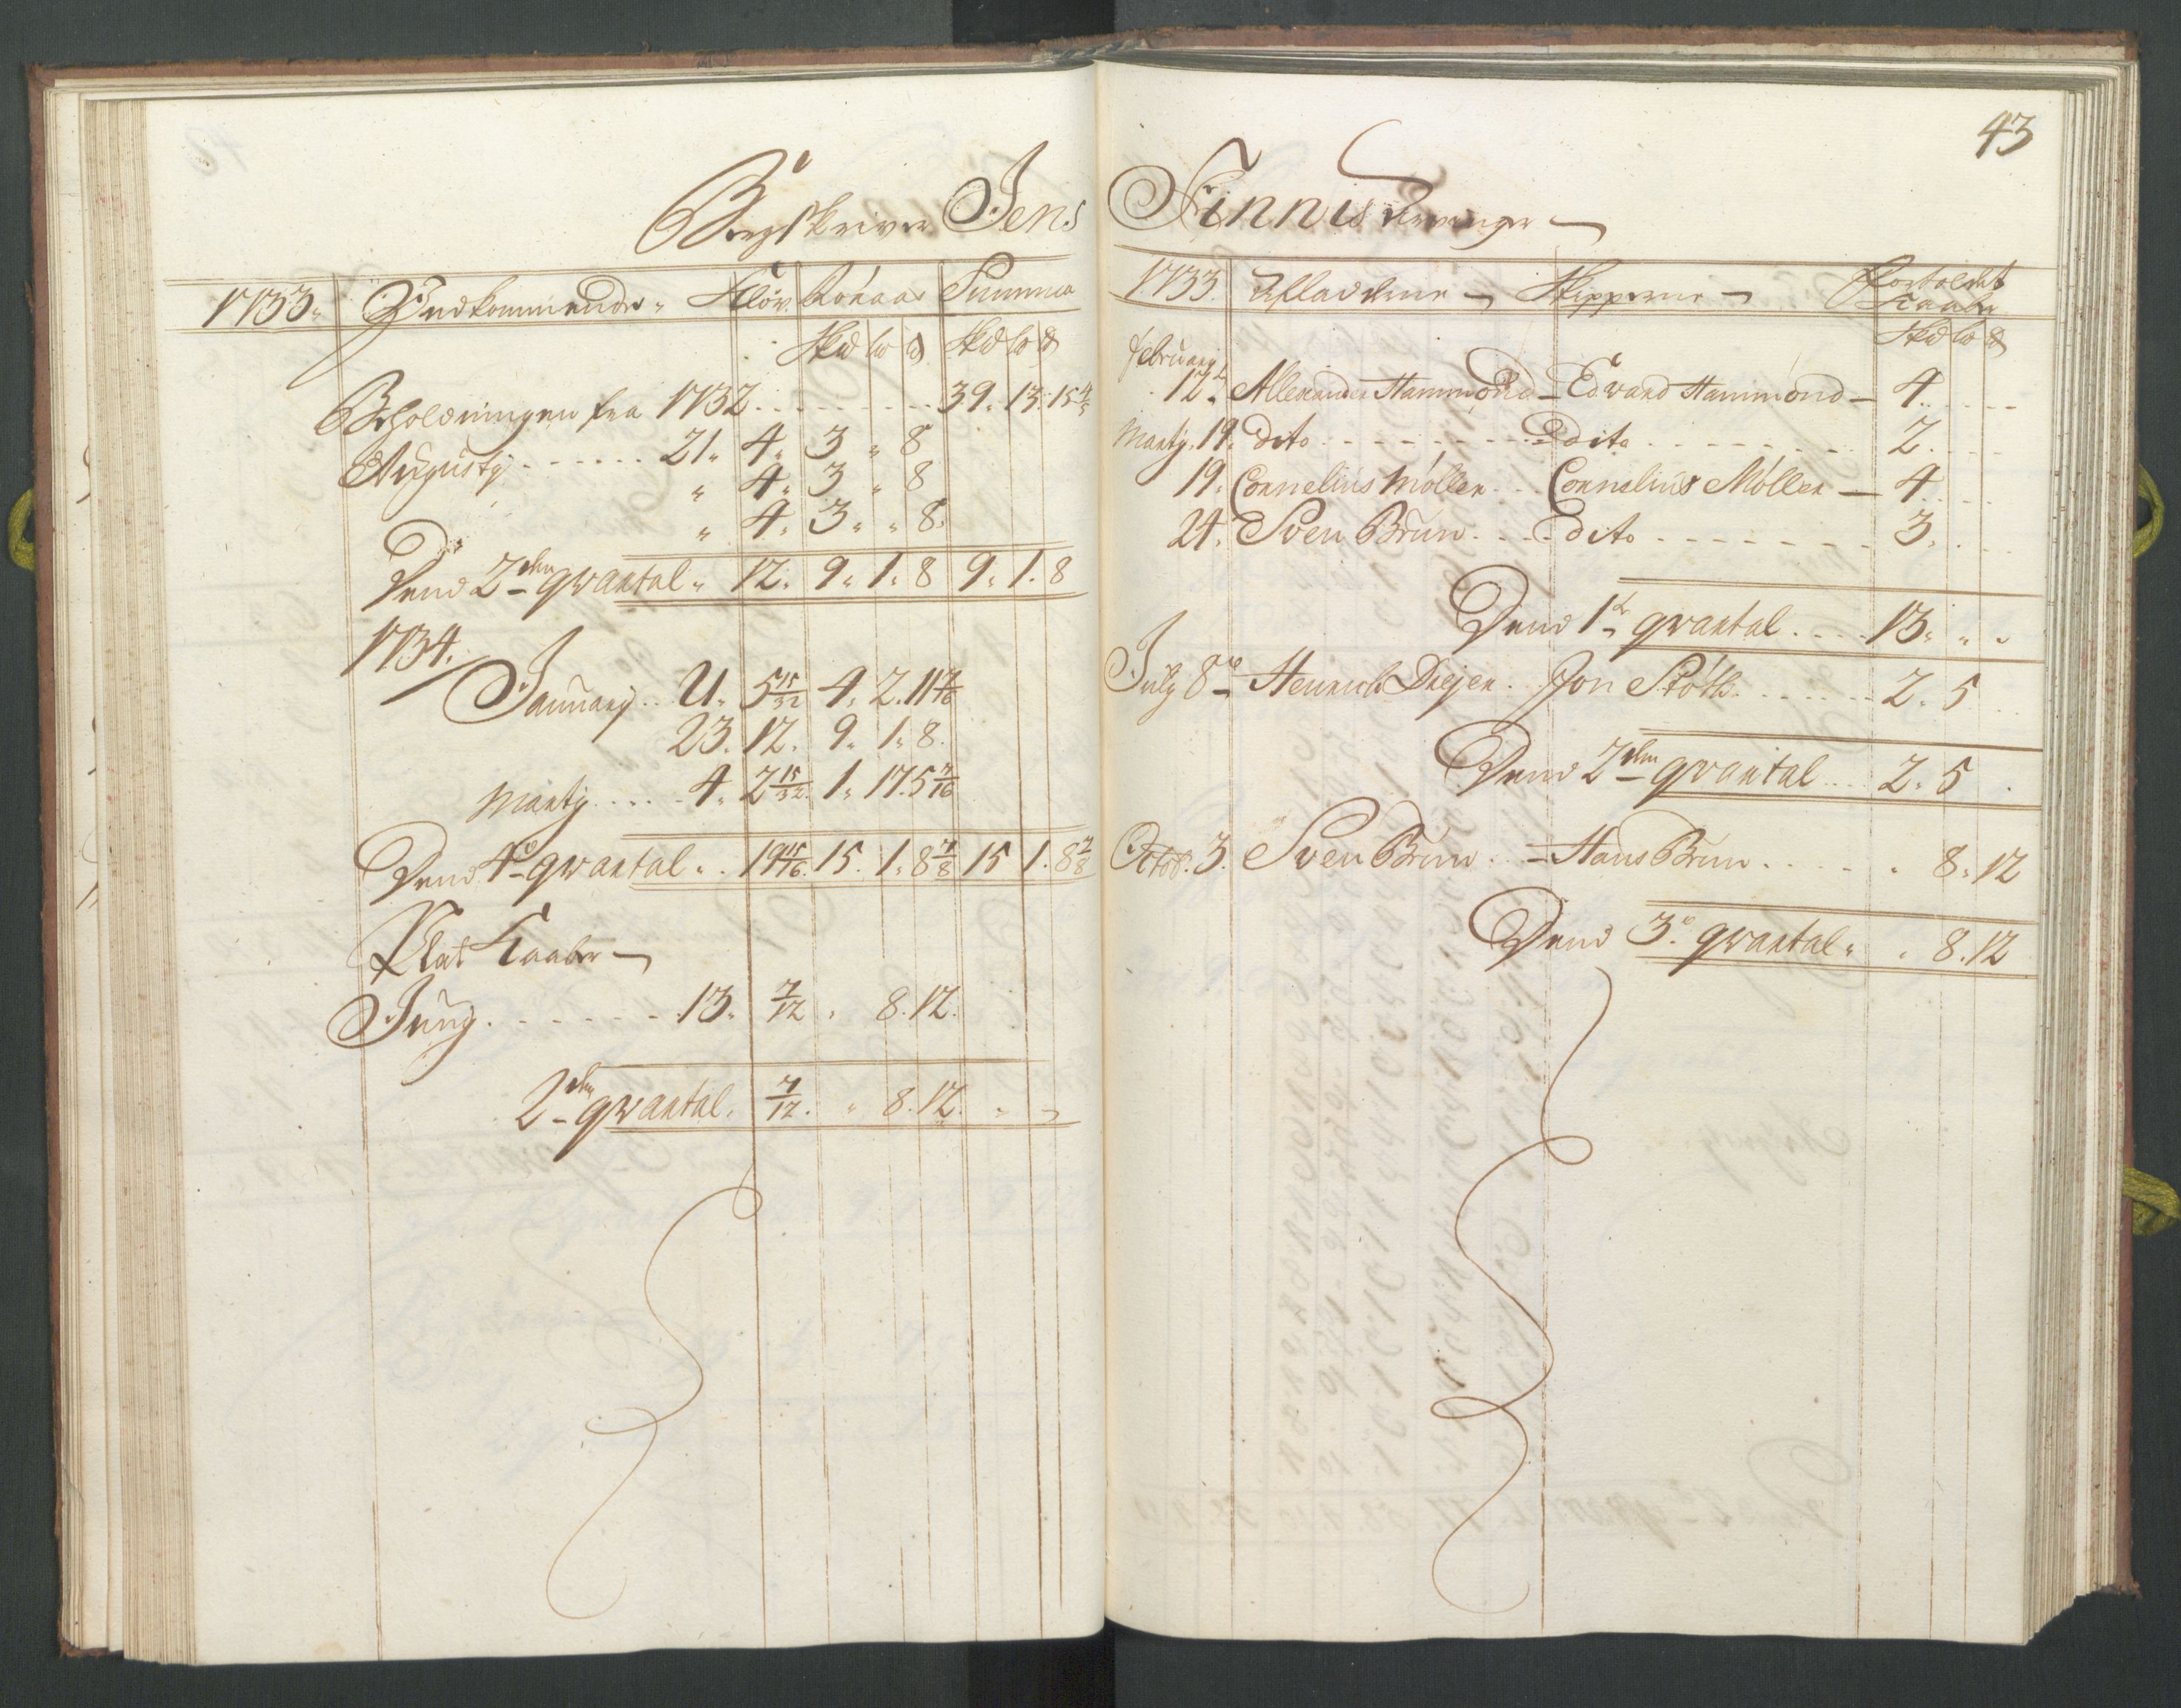 Bergskriver Jens
1733. Indkommende. Kløv. Rokaar Summa
Skd Lv ℔ Skd Lv ℔
Beholdningen fra 1732 . . . . . . . . . 39. 13. 15 4/5
Augusty . . . . . . 21. 4. 3 „ 8
„ 4. 3 „ 8
„ 4. 3. „ 8.
Dend 2den qvartal. 12. 9. 1. 8 9. 1. 8
1734.
January . . 11. 5 15/32 4. 2. 11 7/16
23. 12. 9. 1. 8.
Marty . . . . . 4. 2 15/32. 1. 17. 5 7/16
Dend 4de qvartal. . 19 15/16. 15. 1. 8 7/8 15 1. 8 7/8
Plat Kaaber
Juny . . . . . . . 13. 7/12 . 8. 12.
2den qvartal. 7/12. „ 8. 12.
43
Finnis
1733. Afladerne Skipperne Kaaber
Skd Lv ℔
February
12. Allexander Hammond Edvard Hammond 4. . . .
Marty. 19. dito . . . . . . . . dito . . . . . . . . 2. . . .
19. Cornelius Møller . . . Cornelius Møller 4. . . .
24. Sven Brun. . . . dito . . . . . . . . 3. . . .
Dend 1te qvartal. . . . 13. „ „
July 8de Henrich Diejer . . Jon Støth . . . . . . 2. 5
Dend 2den qvartal . . . 2. 5 .
Octob. 3. Sven Brun. Hans Brun . . . . „ 8. 12
Dend 3de qvartal. „ 8. 12